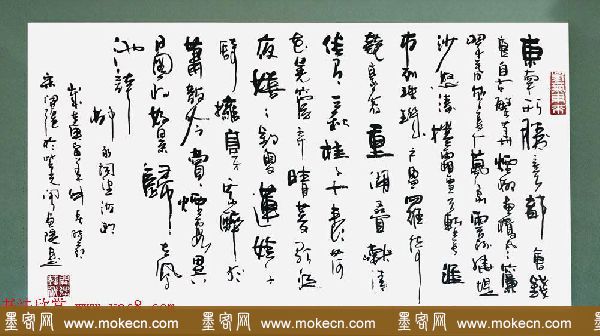 東南形勝三吳都會錢
塘自古繁華煙柳畫橋風簾
翠幕參差十萬人家雲樹繞堤
沙怒濤捲霜雪天塹無涯
市列珠璣戶盈羅綺
競豪奢重湖疊巘清
佳有三秋桂子十里荷
花羌管弄晴菱歌泛
夜嬉〻釣叟蓮娃千
騎擁高牙乘醉聽
簫鼓吟賞煙霞異
日圖將好景歸去鳳
池誇
柳永詞望海潮
墨客网 www.mokecn.com 墨客网 www.mokecn.com 墨客网 www.mokecn.com